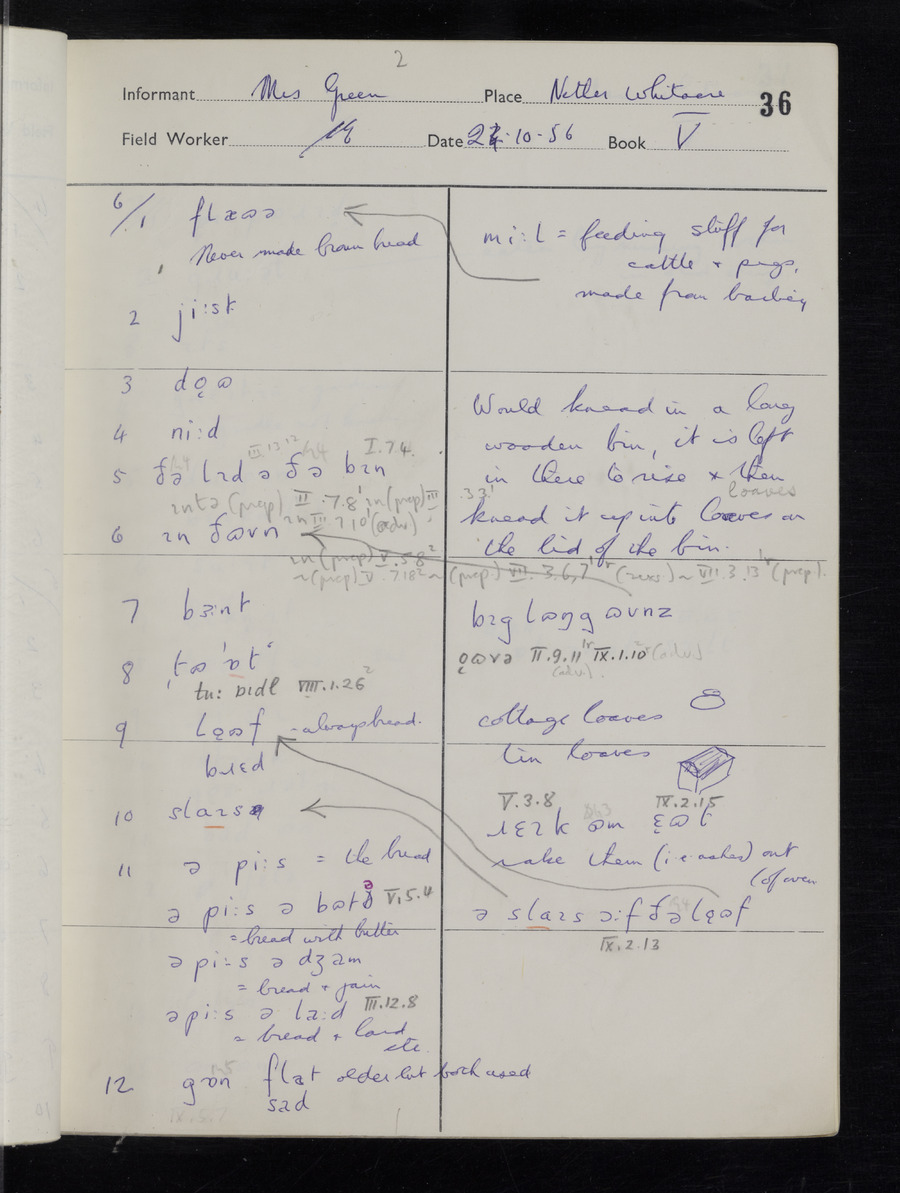 2
Informant Mrs Green Place Nether Whitacre 36
Field Worker Date 10-56 Book V
6/1 flæʊə
Never made brown bread
2 ji:st
3 dọʊ
4 ni:d
III.13.12 I.7.4
5 ðə lɪd ə ðə bɪn
ɪntə (prep) II.7.8 ɪn (prep) III
.3.3
ɪn III.7.10 (adv)
6 ɪn ðʊvn
ɪn (prep) V.5.8
~(prep) V.7.18 ~ (prep) VII.3.6,7 ~ VII.3.13 (prep).
7 bɜɪnt
8 tʊ 'ɒt
tu: ɒɪdl VIII.1.26
9 lọʊf - always bread.
bɹɛd
10 slaɪs
11 ə pi:s = the bread
ə pi:s ə bʊtə V.5.4
= bread with butter
ə pi:s ə dʒam
= bread + jam
ə pi:s ə la:d III.12.8
= bread + lard
etc.
12 gɒn flat older but both used
sad
mi:l = feeding stuff for
cattle + pigs,
made from barley
Would knead in a long
wooden bin, it is left
in there to rise & then
loaves
knead it up into loaves on
the lid of the bin.
bɪg lʊŋg ʊvnz
ọʊvə II.9.11 IX.1.10 (adv)
(adv).
cottage loaves
tin loaves
V.3.8 IX.2.15
ɹɛɪk ʊm ɛʊt
rake them (i.e. ashes) out
(of oven
ə slaɪs ɔ:f ðə lọʊf
IX.2.13